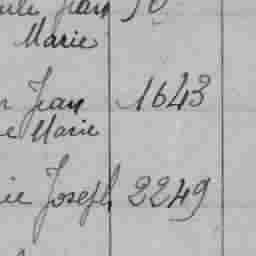 Jean
Marie
Jean 1643
Marie
Joseph 2249